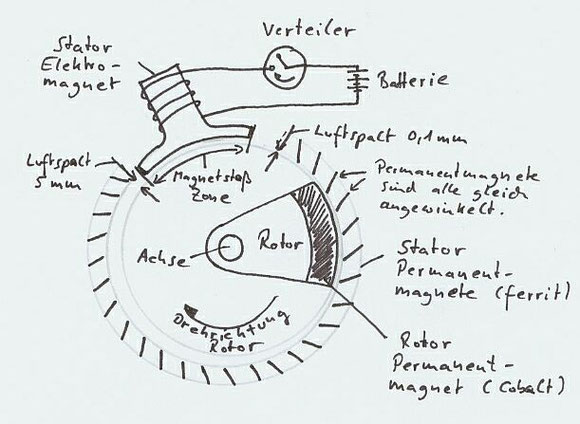 Verteiler
Stator
Elektro-
magnet
Batterie
Luftspalt 0,1mm
Luftspalt
5 mm
Magnetstoß
Zone
Permanentmagnete
sind alle gleich
angewinkelt.
Rotor
Achse
Stator
Permanent-
magnete (ferrit)
Drehrichtung
Rotor
Rotor
Permanent-
magnet (Cobalt)